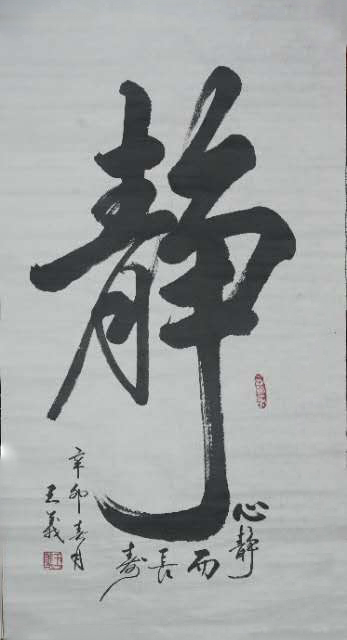 静
心静
而長壽
辛卯春月
王義